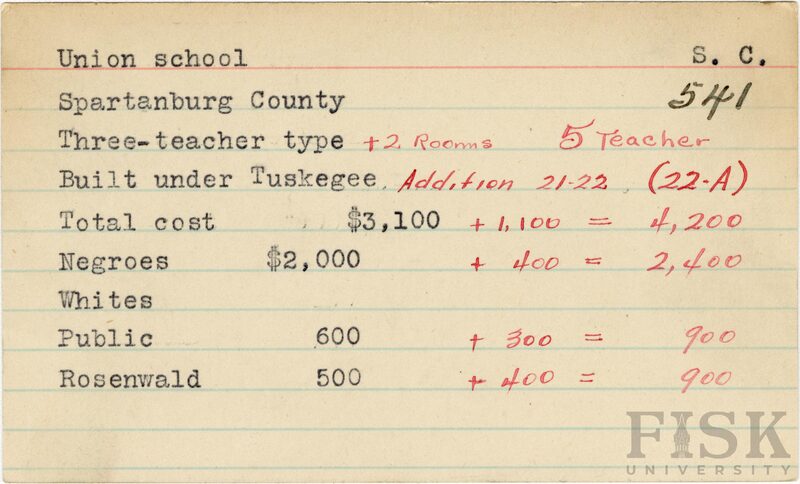 Union school S. C.
Spartanburg County 541
Three-teacher type +2 Rooms 5 Teacher
Built under Tuskegee. Addition 21-22 (22-A)
Total cost $3,100 + 1,100 = 4,200
Negroes $2,000 + 400 = 2,400
Whites
Public 600 + 300 = 900
Rosenwald 500 + 400 = 900
FISK
UNIVERSITY